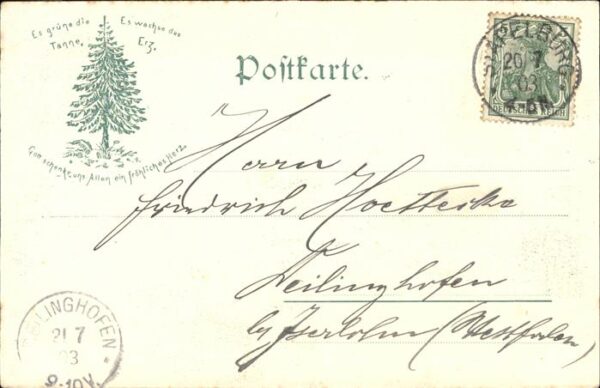 Es grüne die Tanne,
Es wachse das Erz.
Gott schenke uns Allen ein fröhliches Herz.
Postkarte.
20 7
03
DEUTSCHES REICH
Herrn
Friedrich
Deilinghofen
by Iserlohn (Westfalen)
DEILINGHOFEN
21 7
03
9-10V.